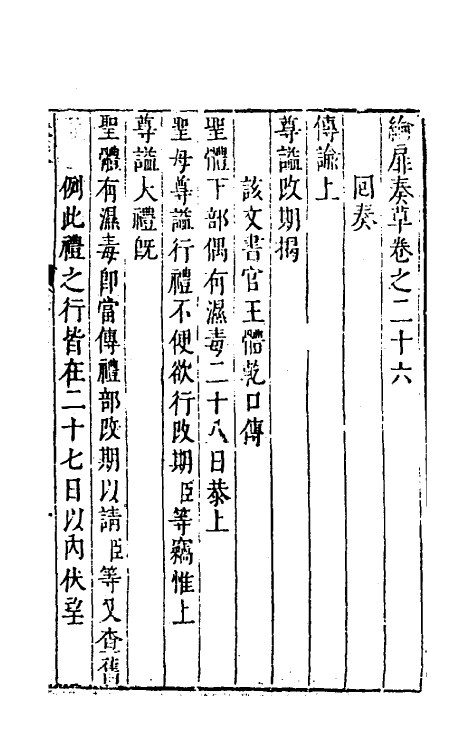 綸扉奏草卷之二十六
回奏
傳諭上
尊謚改期揭
該文書官王體乾口傳
聖體下部偶有濕毒二十八日恭上
聖母尊謚行禮不便欲行改期臣等竊惟上
尊謚大禮既
聖體有濕毒卽當傳禮部改期以請臣等又查舊
例此禮之行皆在二十七日以內伏望